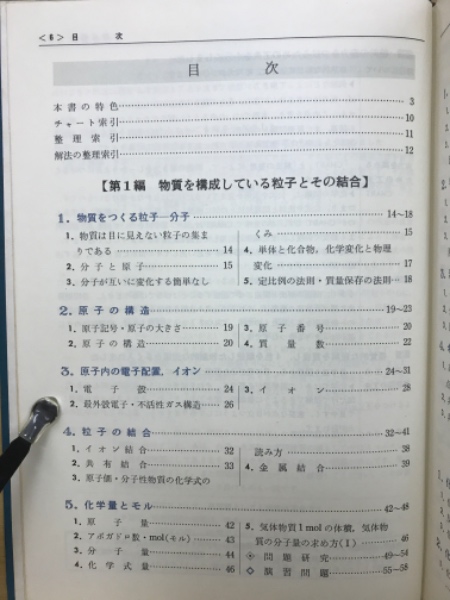 <6> 目 次
目 次
本書の特色 3
チャート索引 10
整理索引 11
解法の整理索引 12
【第1編 物質を構成している粒子とその結合】
1. 物質をつくる粒子―分子 14~18
1. 物質は目に見えない粒子の集ま
りである 14
2. 分子と原子 15
3. 分子が互いに変化する簡単なし
くみ 15
4. 単体と化合物, 化学変化と物理
変化 17
5. 定比例の法則・質量保存の法則 18
2. 原子の構造 19~23
1. 原子記号・原子の大きさ 19
2. 原子の構造 20
3. 原子番号 20
4. 質量数 22
3. 原子内の電子配置, イオン 24~31
1. 電子殻 24
2. 最外殻電子・不活性ガス構造 26
3. イオン 28
4. 粒子の結合 32~41
1. イオン結合 32
2. 共有結合 33
3. 原子価・分子性物質の化学式の
読み方 38
4. 金属結合 39
5. 化学量とモル 42~48
1. 原子量 42
2. アボガドロ数・mol(モル) 43
3. 分子量 44
4. 化学式量 46
5. 気体物質1molの体積, 気体物
質の分子量の求め方(I) 46
◈ 問題研究 49~54
◇ 演習問題 55~58